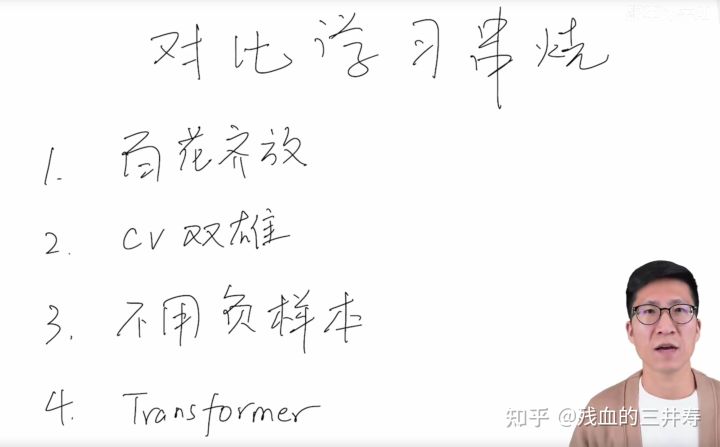 对比学习串烧
1. 百花齐放
2. CV双雄
3. 不用负样本
4. Transformer
知乎 @残血的三井寿